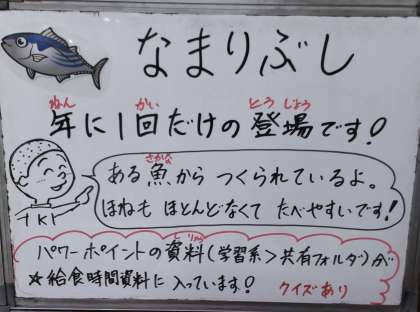 なまりぶし
ねん かい とうじょう
年に1回だけの登場です!
さかな
ある魚からつくられているよ。
ほねもほとんどなくてたべやすいです!
しりょう
パワーポイントの資料(学習系>共有フォルダ)が
★給食時間資料に入っています!
クイズあり